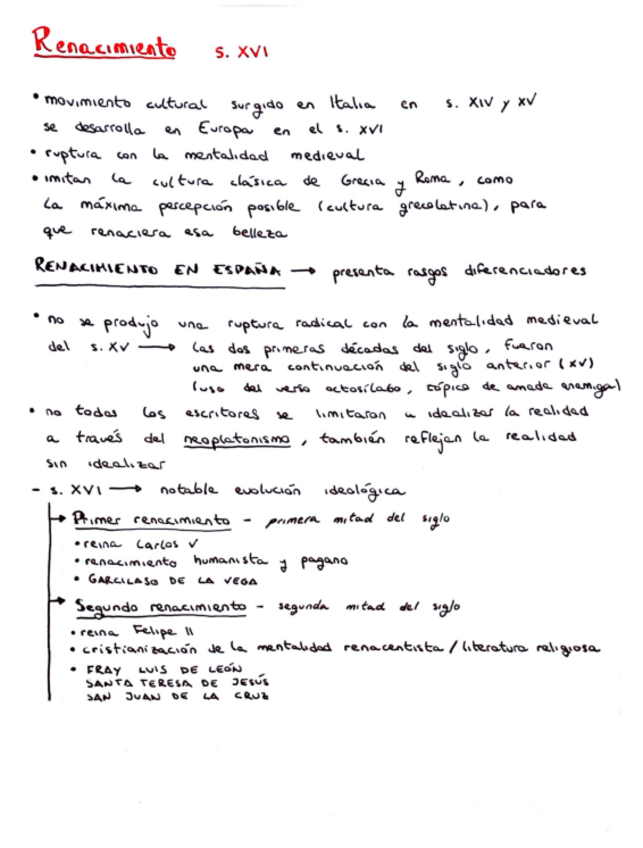 Renacimiento s. XVI
• movimiento cultural surgido en Italia en s. XIV y XV
se desarrolla en Europa en el s. XVI
• ruptura con la mentalidad medieval
• imitan la cultura clásica de Grecia y Roma, como
la máxima percepción posible (cultura grecolatina), para
que renaciera esa belleza
RENACIMIENTO EN ESPAÑA → presenta rasgos diferenciadores
• no se produjo una ruptura radical con la mentalidad medieval
del s. XV → las dos primeras décadas del siglo, fueron
una mera continuación del siglo anterior (XV)
(uso del verso octosílabo, tópico de amada enemiga)
• no todos los escritores se limitaron a idealizar la realidad
a través del neoplatonismo, también reflejan la realidad
sin idealizar
- s. XVI → notable evolución ideológica
→ Primer renacimiento - primera mitad del siglo
• reina Carlos V
• renacimiento humanista y pagano
• GARCILASO DE LA VEGA
→ Segundo renacimiento - segunda mitad del siglo
• reina Felipe II
• cristianización de la mentalidad renacentista / literatura religiosa
• FRAY LUIS DE LEÓN
SANTA TERESA DE JESÚS
SAN JUAN DE LA CRUZ